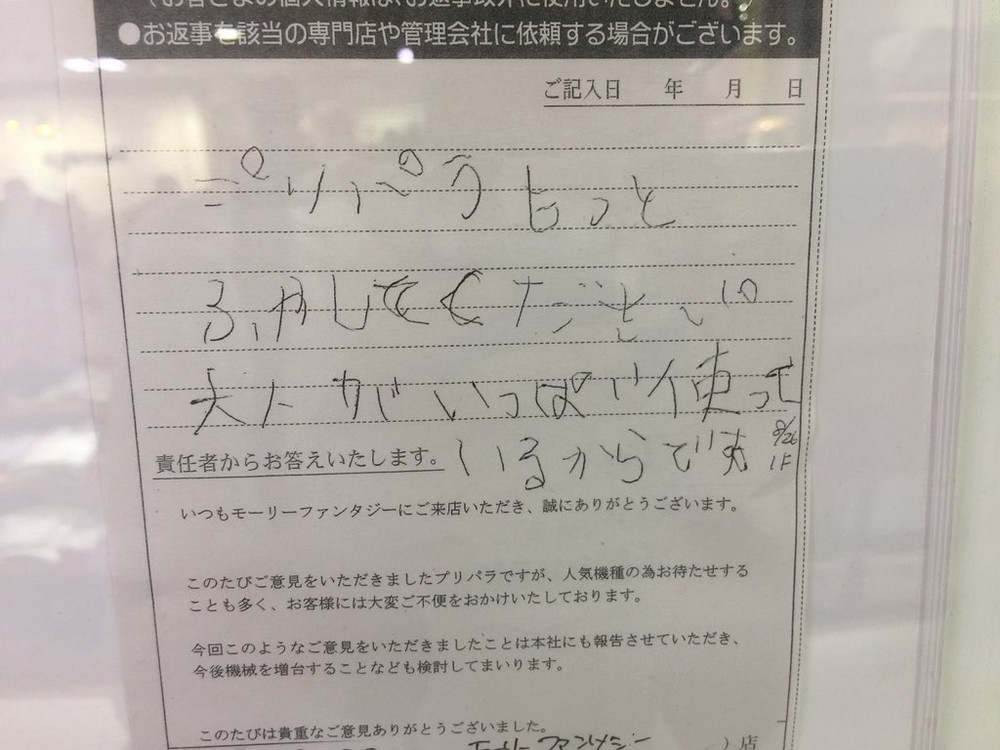 ●お返事を該当の専門店や管理会社に依頼する場合がございます。
ご記入日 年 月 日
プリパラもっと
ふやしてください。
大人がいっぱい使って
いるからです
8/26
1F
責任者からお答えいたします。
いつもモーリーファンタジーにご来店いただき、誠にありがとうございます。
このたびご意見をいただきましたプリパラですが、人気機種の為お待たせする
ことも多く、お客様には大変ご不便をおかけいたしております。
今回このようなご意見をいただきましたことは本社にも報告させていただき、
今後機械を増台することなども検討してまいります。
このたびは貴重なご意見ありがとうございました。
モーリーファンタジー )店